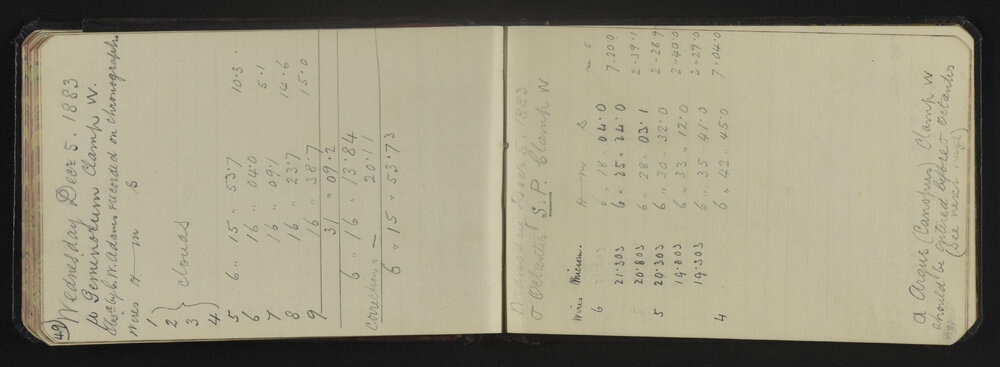 49
Wednesday Decr 5. 1883
μ Geminorum Clamp W.
Obsd by C. W. Adams recorded on Chronograph.
Wires H m S
1
2
3 } clouds
4
5 6 " 15 " 53.7 10.3
6 16 " 04.0 5.1
7 16 " 09.1 14.6
8 16 " 23.7 15.0
9 16 " 38.7
31 " 09.2
6 " 16 " 13.84
Correction = — 20.11
6 " 15 " 53.73
Wednesday Decr 5. 1883
σ Octantis S.P. Clamp W
Wires Microm. H m S m s
6 6 " 18 " 04.0 7.20.0
21.303 6 " 25 " 24.0 2.39.1
20.803 6 " 28 " 03.1 2.28.9
5 20.303 6 " 30 " 32.0 2.40.0
19.803 6 " 33 " 12.0 2.29.0
19.303 6 " 35 " 41.0 7.04.0
4 6 " 42 " 45.0
α Argus (Canopus) Clamp W
should be entered before σ Octantis
(See next page)